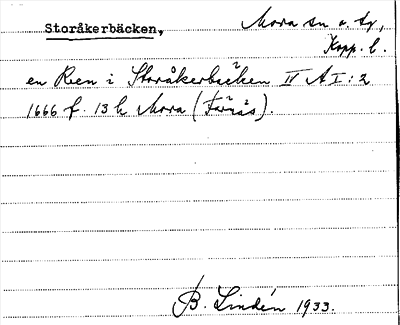 Storåkerbäcken,
Mora sn o. tg,
Kopp. l.
en Reen i Storåkerbäcken IV A I:2
1666 f. 13 k Mora (Färnäs).
B. Lindén 1933.